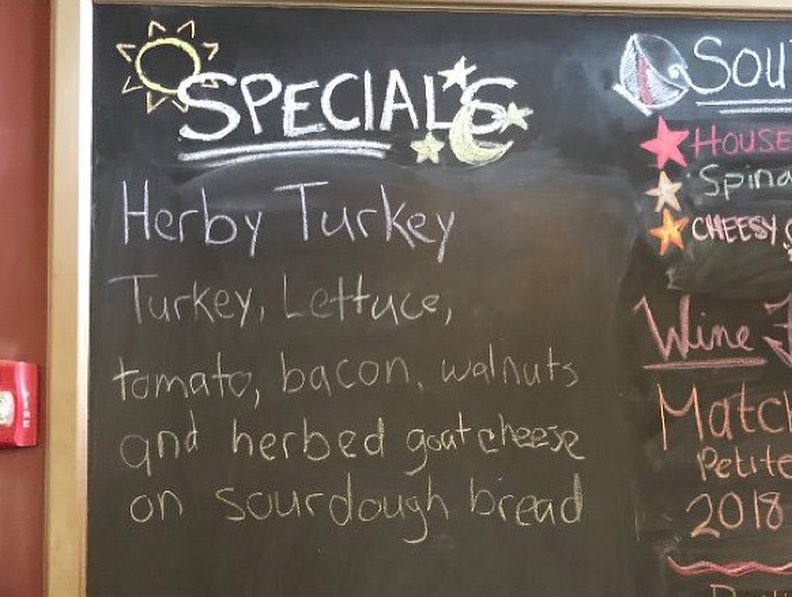 SPECIALS
Herby Turkey
Turkey, Lettuce,
tomato, bacon, walnuts
and herbed goat cheese
on sourdough bread
HOUSE
CHEESY
Wine
Petite
2018